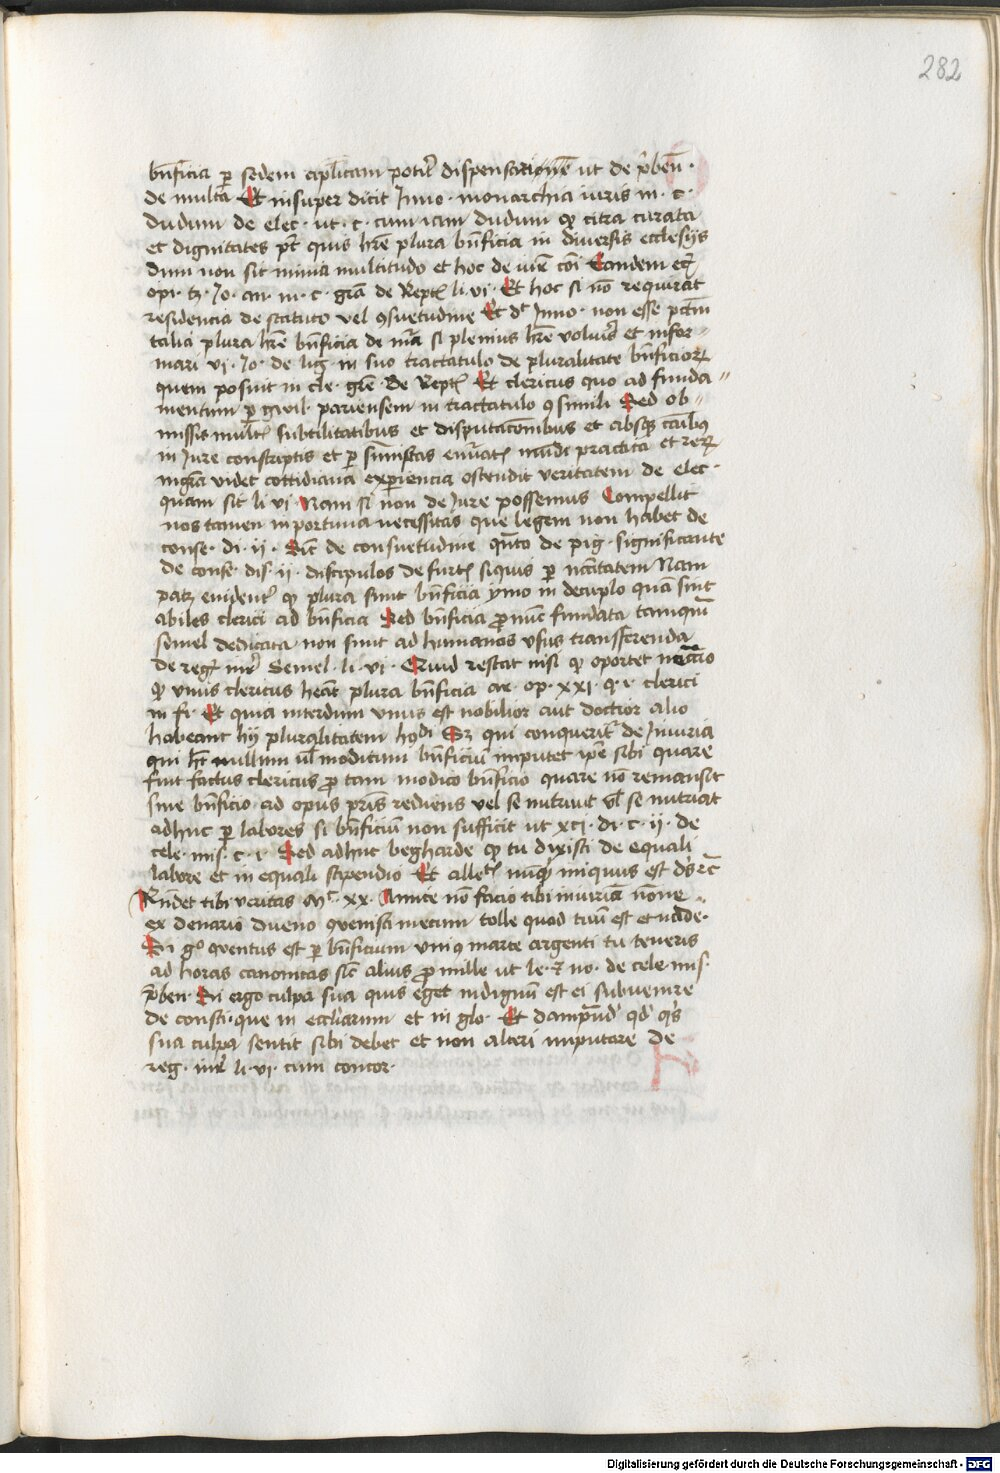 282
bn̄ficia ꝑ sedem ap̄licam potiꝰ dispensacionē ut de p̄ben̄ ·
de multa Et insuper dicit Inno · monarchia iuris in · c ·
dudum de elec · ut · c · cum iam dudum ꝙ citra curata
et dignitates pt̄ quis hr̄e plura bn̄ficia in diversis ecclesijs
dum non sit nimia multitudo et hoc de iur̄e cōi Tandem
opi · Jo · an · in · c · gr̄a de Rept̄ li · vi · Et hoc si nō requirat
residencia de statuto vel ꝯsuetudine Et dt̄ Inno · non esse pctm̄
talia plura hr̄e bn̄ficia si plenius hr̄e volu̾is et infor-
mari vi · Jo · de lig · in suo tractatulo de pluralitate bn̄ficioꝝ
quem posuit in cle · gr̄e · de Rept̄ Et clericus quo ad funda-
mentum ꝑ gwil · pariensem in tractatulo ꝯsimili Sed ob-
missis mult̄ subtilitatibus et disputacōnibus et absqꝫ
in Jure conscriptis et ꝑ mūdi practica et reꝝ
mgr̄a videt cottidiana experiencia ostendit veritatem de elec ·
quam sit li vi · Nam si non de Jure possemus Compellit
nos tamen inportuna necessitas que legem non habet de
conse · di · ij · Sic̄ de consuetudine qn̄to de pig · significante
de conse · dis · ij · discipulos de furt̄ siquis ꝑ nc̄citatem Nam
patꝫ evident̾ ꝙ plura sunt bn̄ficia ymo in decuplo quā sint
abiles clerici ad bn̄ficia Sed bn̄ficia ꝓ nūc fundata tamqūm
semel dedicata non sunt ad humanos usus transferenda
de reg̾ iur̾ Semel · li · vi · Quid restat nisi ꝙ oportet
ꝙ unus clericus heat̄ plura bn̄ficia ar · op · xxi · q · i · clerici
in fi · Et quia interdum vnus est nobilior aut doctior alio
habeant hij pluralitatem Sꝫ qui conquerit̾ de Iniuria
qui ht̄ nullum ul̄ modicum bn̄ficiū imputet ip̄e sibi quare
fuit factus clericus ꝓ tam modico bn̄ficio quare nō remansit
sine bn̄ficio · ad opus pr̄is rediens vel se nutriat ul̄ se nutriat
adhuc ꝑ labores si bn̄ficiū non sufficit ut xci · di · c · ij · de
cele · mis · c · i · Sed adhuc begharde ꝙ tu dixisti de equali
labore et in equali stipendio Et numqꝫ iniquus est
Rn̄det tibi veritas Mt̄ · xx · Amice nō facio tibi iniuriā nōne
ex denario diueno ꝯuenisti mecum tolle quod tuū est et uade ·
Si gͦ ꝯventus est ꝑ bn̄ficium unīꝰ marce argenti tu teneris
ad horas canonicas sic̄ alius ꝓ mille ut le · ⁊ no · de cele mis ·
p̄ben · Si ergo culpa sua quis eget indignū est ei subvenire
de consti · que in eccl̄iarum et in glo · Et dampnū qd̾ qis̾
sua culpa sentit sibi debet et non alteri imputare de
reg · iur̾ li · vi · cum concor ·
Digitalisierung gefördert durch die Deutsche Forschungsgemeinschaft - DFG